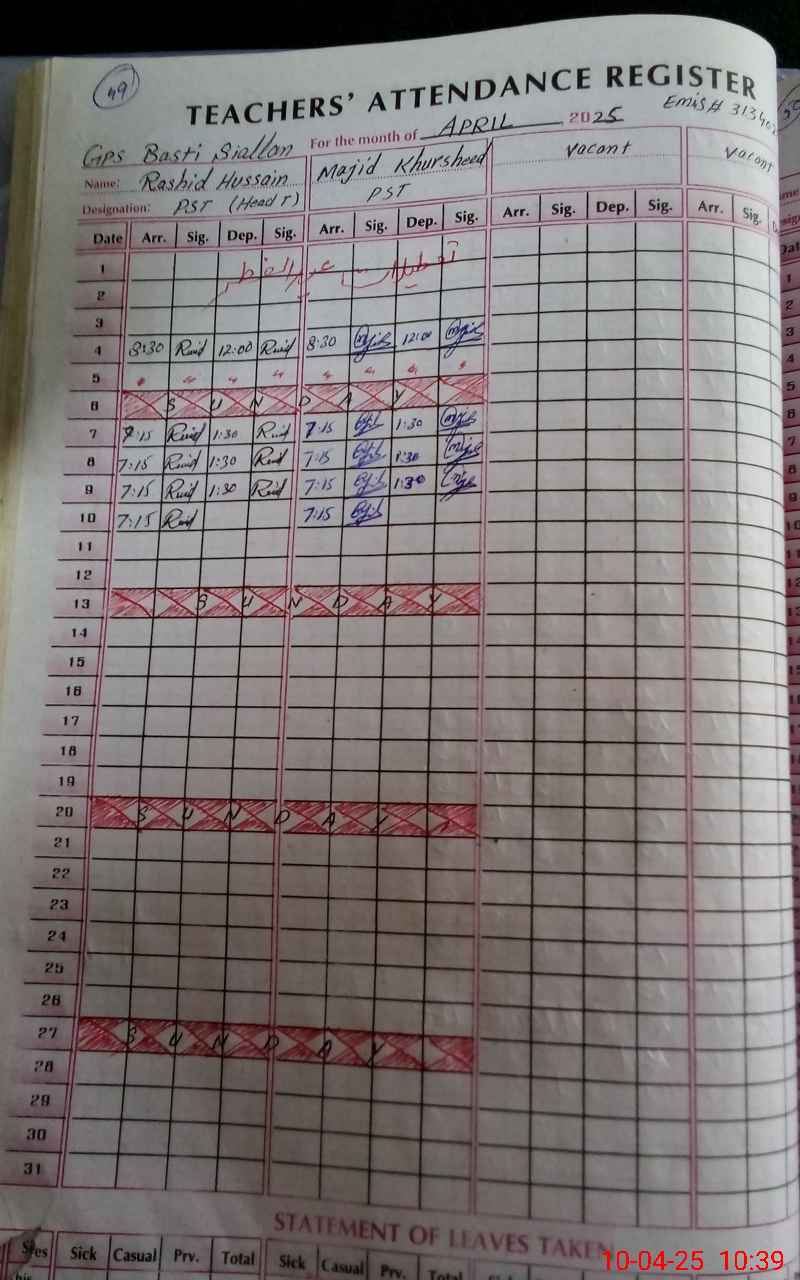 49
TEACHERS' ATTENDANCE REGISTER
Emis# 313402
For the month of APRIL 2025
GPS Basti Siallan
Name: Rashid Hussain Majid Khursheed Vacant Vacant
Designation: PST (Head T) PST
Date Arr. Sig. Dep. Sig. Arr. Sig. Dep. Sig. Arr. Sig. Dep. Sig. Arr. Sig.
1 تعطیلات عید الفطر
2
3
4 8:30 12:00 8:30 12:00
5 " " " " " " " "
6 S U N D A Y
7 7:15 1:30 7:15 1:30
8 7:15 1:30 7:15 1:30
9 7:15 1:30 7:15 1:30
10 7:15 7:15
11
12
13 S U N D A Y
14
15
16
17
18
19
20 S U N D A Y
21
22
23
24
25
26
27 S U N D A Y
28
29
30
31
STATEMENT OF LEAVES TAKEN
Sick Casual Prv. Total Sick Casual Prv. Total
10-04-25 10:39